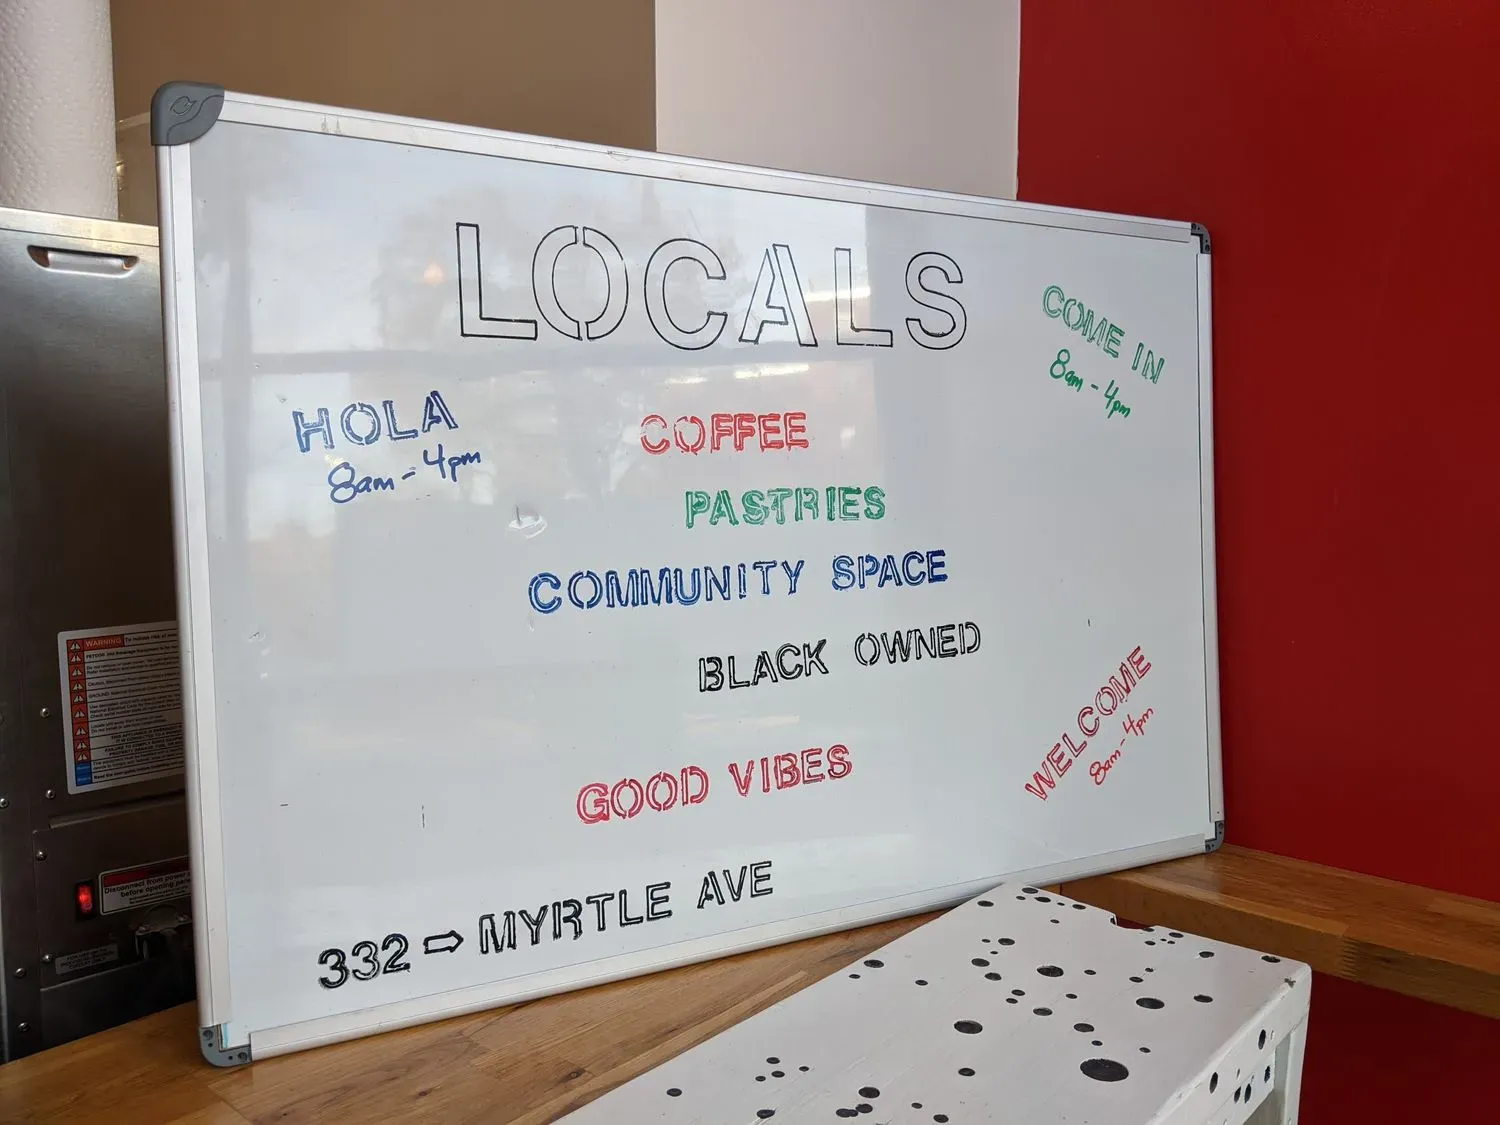 LOCALS
COME IN
8am - 4pm
HOLA
8am - 4pm
COFFEE
PASTRIES
COMMUNITY SPACE
BLACK OWNED
WELCOME
8am - 4pm
GOOD VIBES
332 ⇨ MYRTLE AVE
WARNING
Disconnect from power
before opening